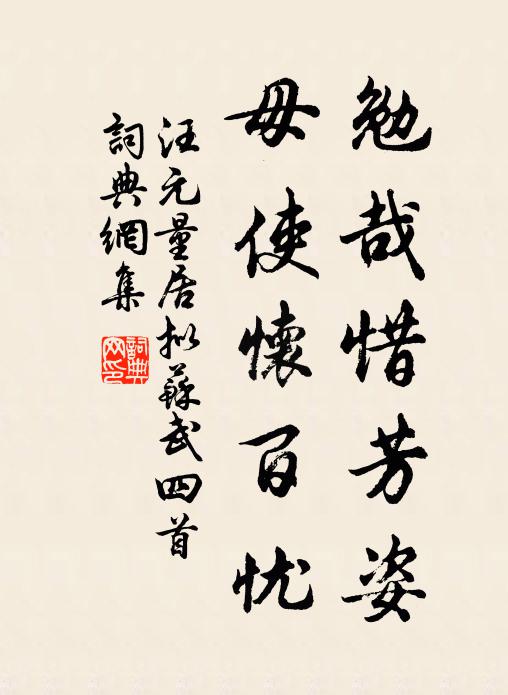 勉哉惜芳姿
毋使懷百忧
汪元量居拟蘇武四首
詞典網集
詞典網印